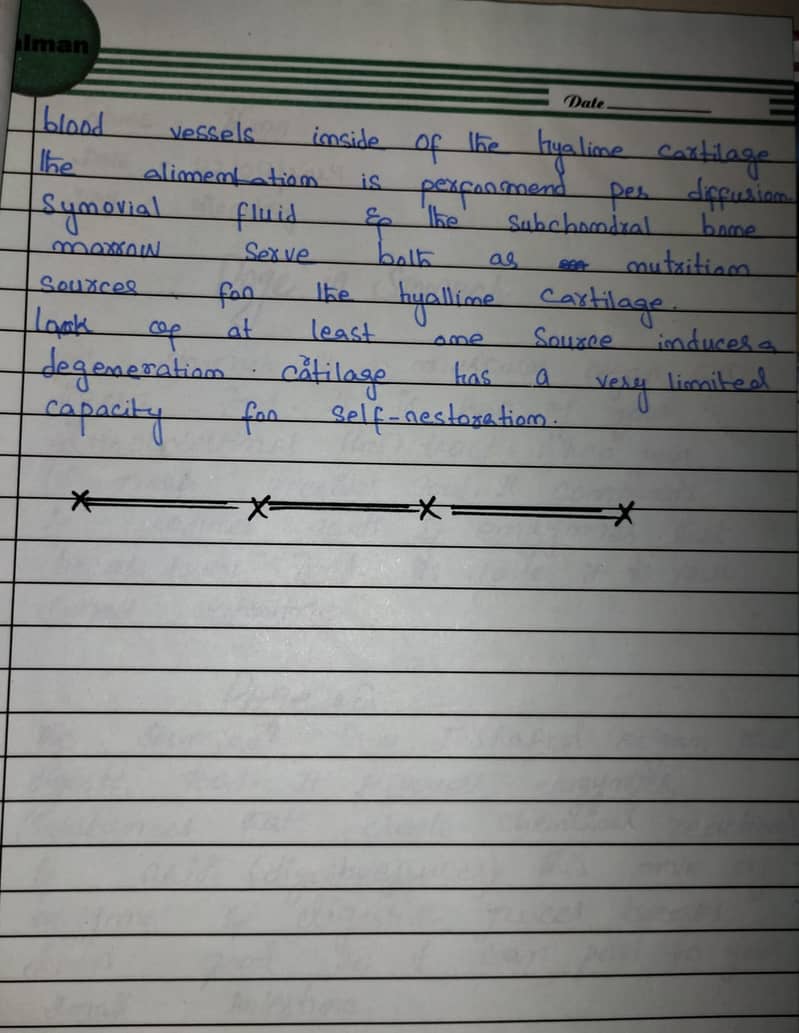 lman
Date
blood vessels inside of the hyaline cartilage
the alimentation is perfoomend per diffusion
Synovial fluid & the subchondral bone
marrow serve both as nutrition
sources for the hyalline cartilage.
lack of at least one source induces a
degeneration. cartilage has a very limited
capacity for self-restoration.